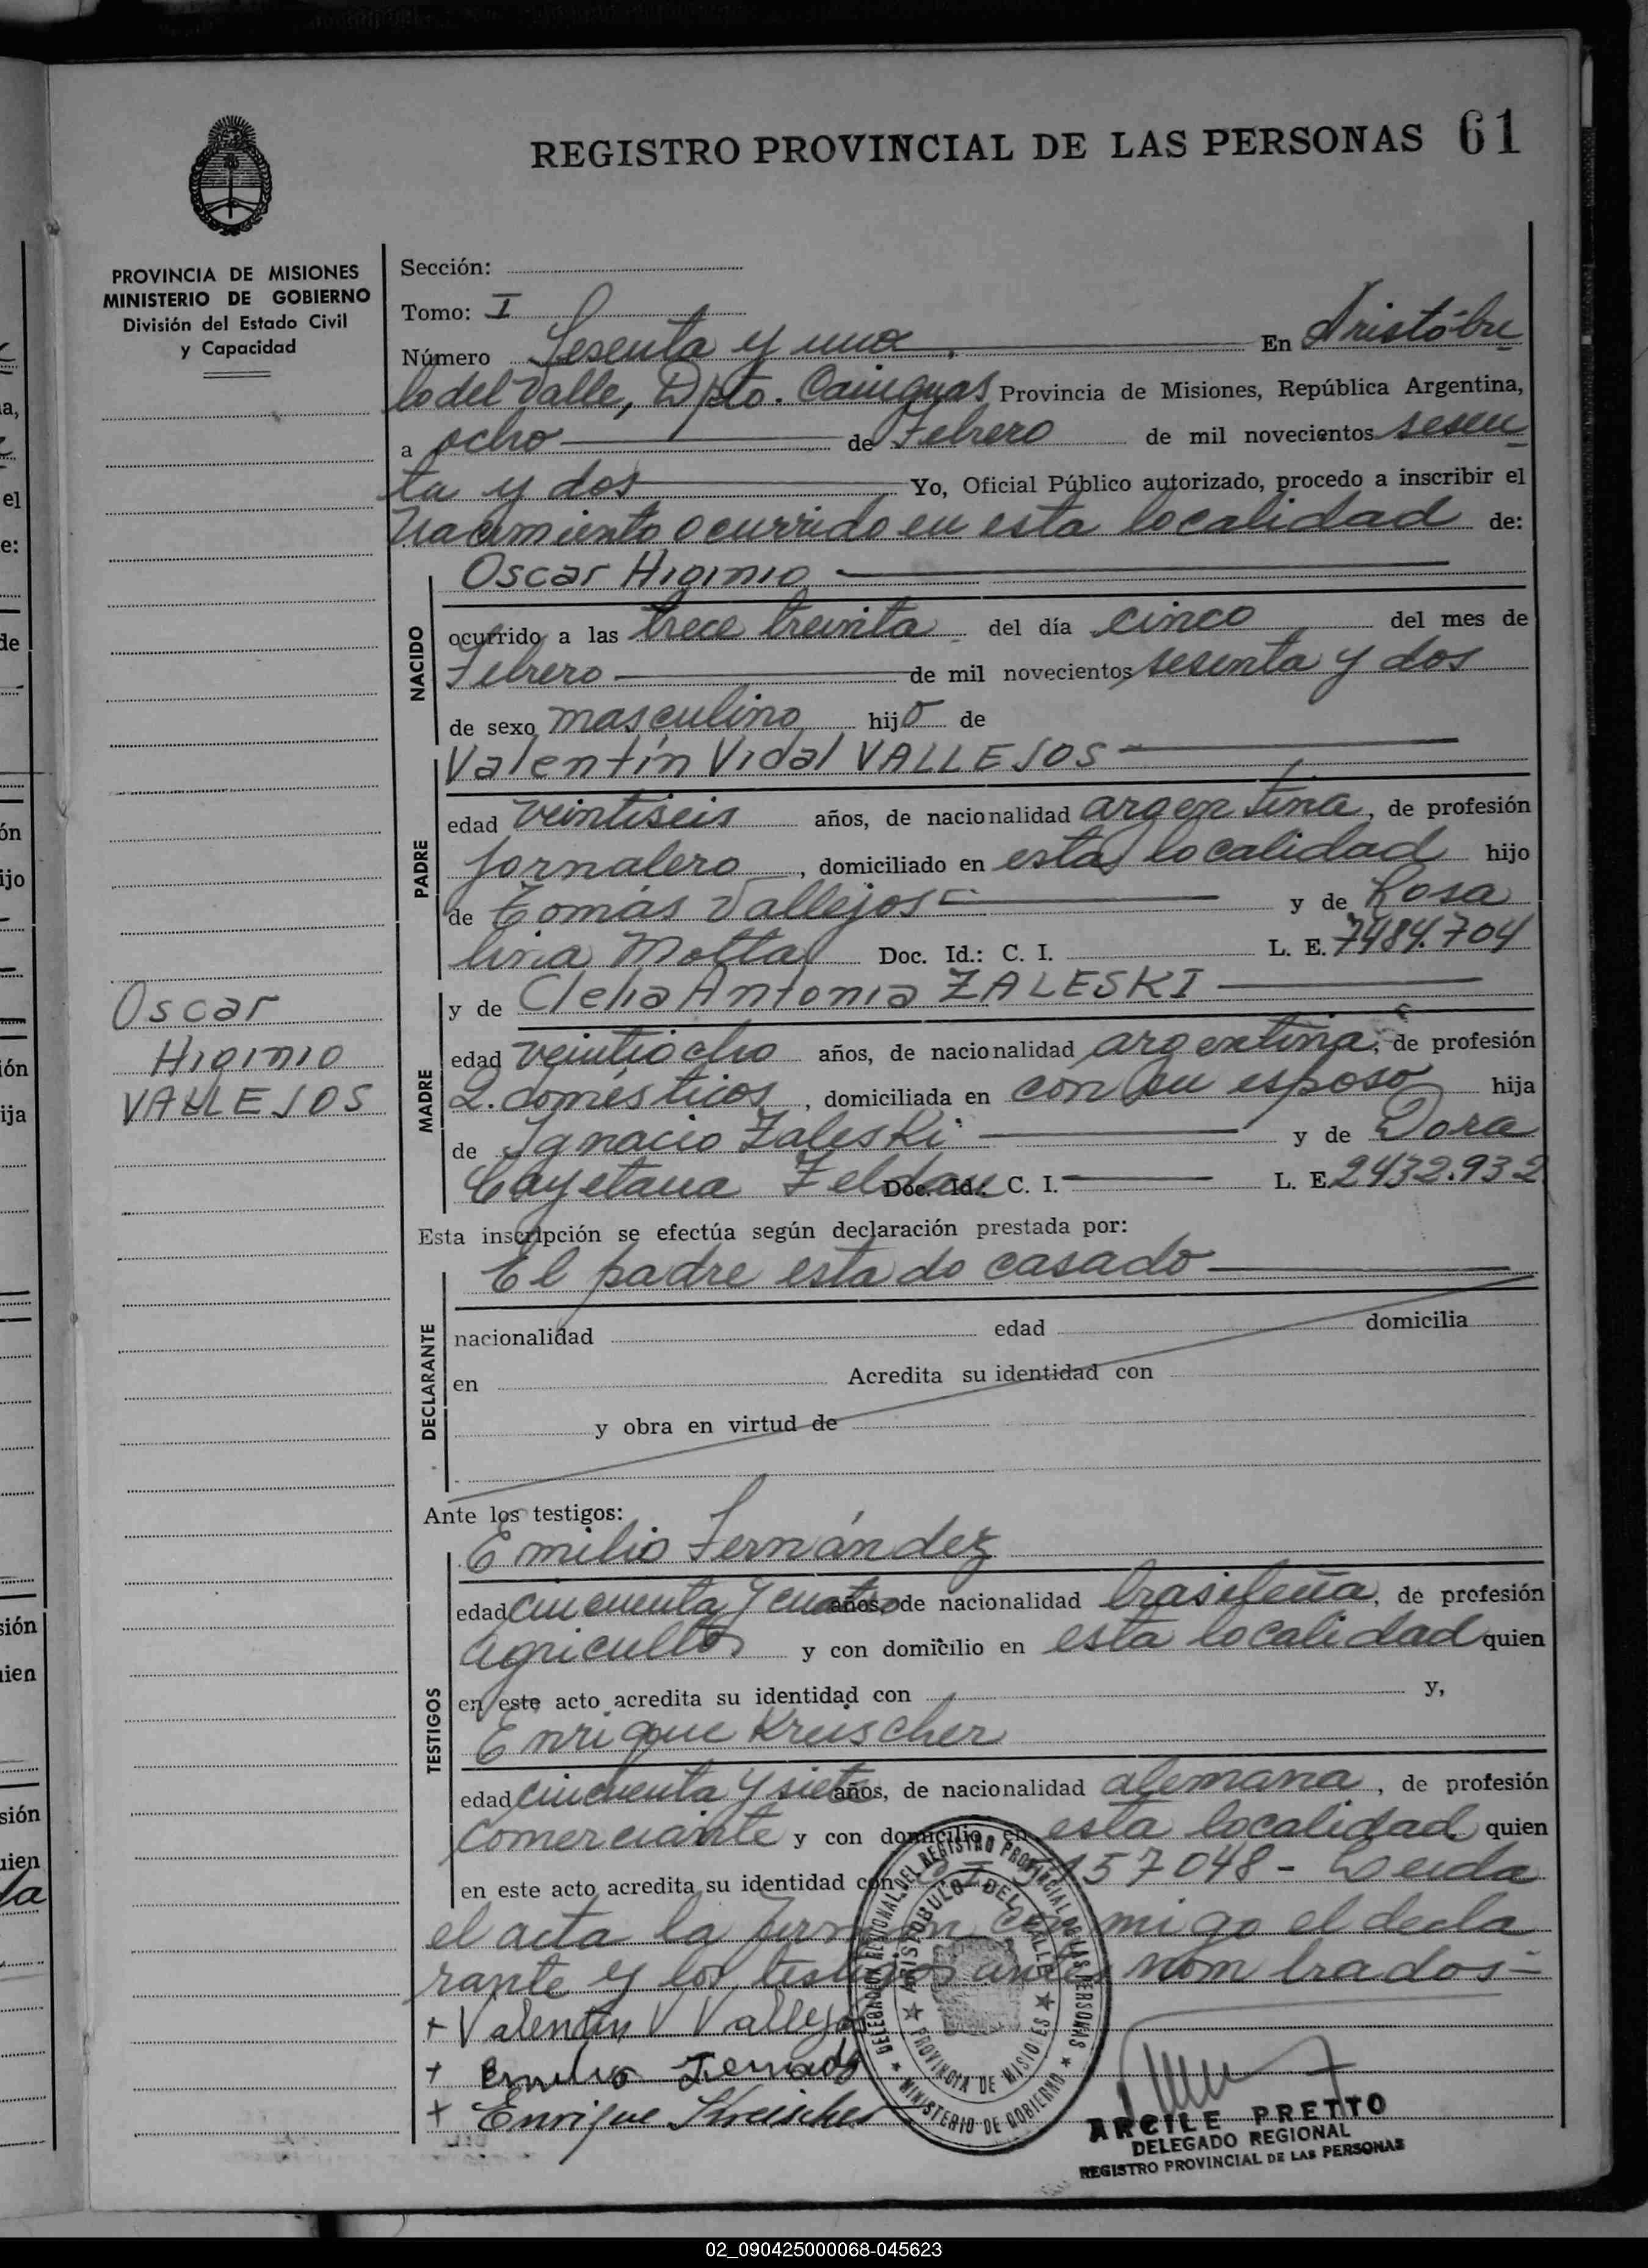 REGISTRO PROVINCIAL DE LAS PERSONAS 61
PROVINCIA DE MISIONES
MINISTERIO DE GOBIERNO
División del Estado Civil
y Capacidad
Oscar
Higinio
VALLEJOS
Sección:
Tomo: I
Número Sesenta y uno. En Aristóbu
lo del Valle, Dpto. Cainguas Provincia de Misiones, República Argentina,
a ocho de Febrero de mil novecientos sesen
ta y dos Yo, Oficial Público autorizado, procedo a inscribir el
nacimiento ocurrido en esta localidad de:
Oscar Higinio
NACIDO
ocurrido a las trece treinta del día cinco del mes de
Febrero de mil novecientos sesenta y dos
de sexo masculino hijo de
Valentín Vidal VALLEJOS
PADRE
edad veintiseis años, de nacionalidad argentina, de profesión
jornalero, domiciliado en esta localidad hijo
de Tomás Vallejos y de Rosa
lina Motta Doc. Id.: C. I. L. E. 7484.704
y de Clelia Antonia ZALESKI
MADRE
edad veintiocho años, de nacionalidad argentina, de profesión
Q. domésticos, domiciliada en con su esposo hija
de Ignacio Zaleski y de Dora
Cayetana Doc. Id.: C. I. L. E. 2432.932
Esta inscripción se efectúa según declaración prestada por:
El padre estado casado
DECLARANTE
nacionalidad edad domicilia
en Acredita su identidad con
y obra en virtud de
Ante los testigos:
Emilio Fernández
TESTIGOS
edad cincuenta y cuatro años, de nacionalidad brasileña, de profesión
agricultor y con domicilio en esta localidad quien
en este acto acredita su identidad con y,
Enrique Kreischer
edad cincuenta y siete años, de nacionalidad alemana, de profesión
comerciante y con domicilio en esta localidad quien
en este acto acredita su identidad con C.I. 157048 - Leida
el acta la firman conmigo el decla
rante y los testigos antes nombrados-
+ Valentín V Vallejos
+ Emilio
+ Enrique Kreischer
DELEGACION REGIONAL DEL REGISTRO PROVINCIAL DE LAS PERSONAS
MINISTERIO DE GOBIERNO
ARISTOBULO DEL VALLE
PROVINCIA DE MISIONES
ARCILE PRETTO
DELEGADO REGIONAL
REGISTRO PROVINCIAL DE LAS PERSONAS
02_090425000068-045623